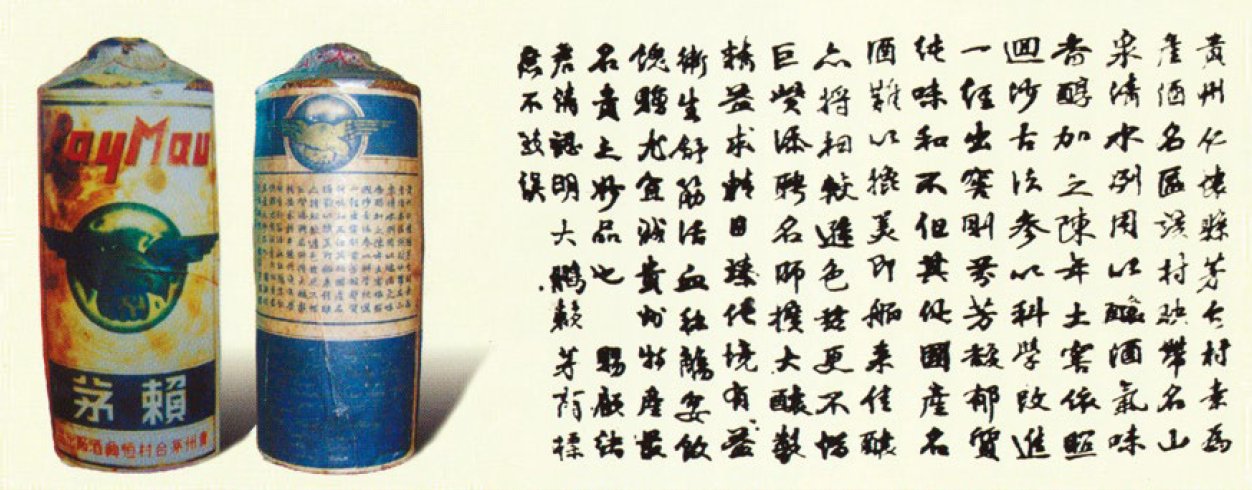 Lay Mau
賴茅
貴州仁懷縣茅台村素為
產酒名區該村映帶名山
泉清水冽用以釀酒氣味
香醇加之陳年土窖依照
迴沙古法參以科學改進
一經出窖則芬芳馥郁質
純味和不但其他國產名
酒難以擬美即舶來佳釀
亦將相較遜色茲更不惜
巨資添聘名師擴大釀製
精益求精日臻佳境有益
衛生舒筋活血社觴宴飲
餽贈尤宜誠貴州特產最
名貴之妙品也 賜顧諸
君請認明大鵬賴茅商標
庶不致誤